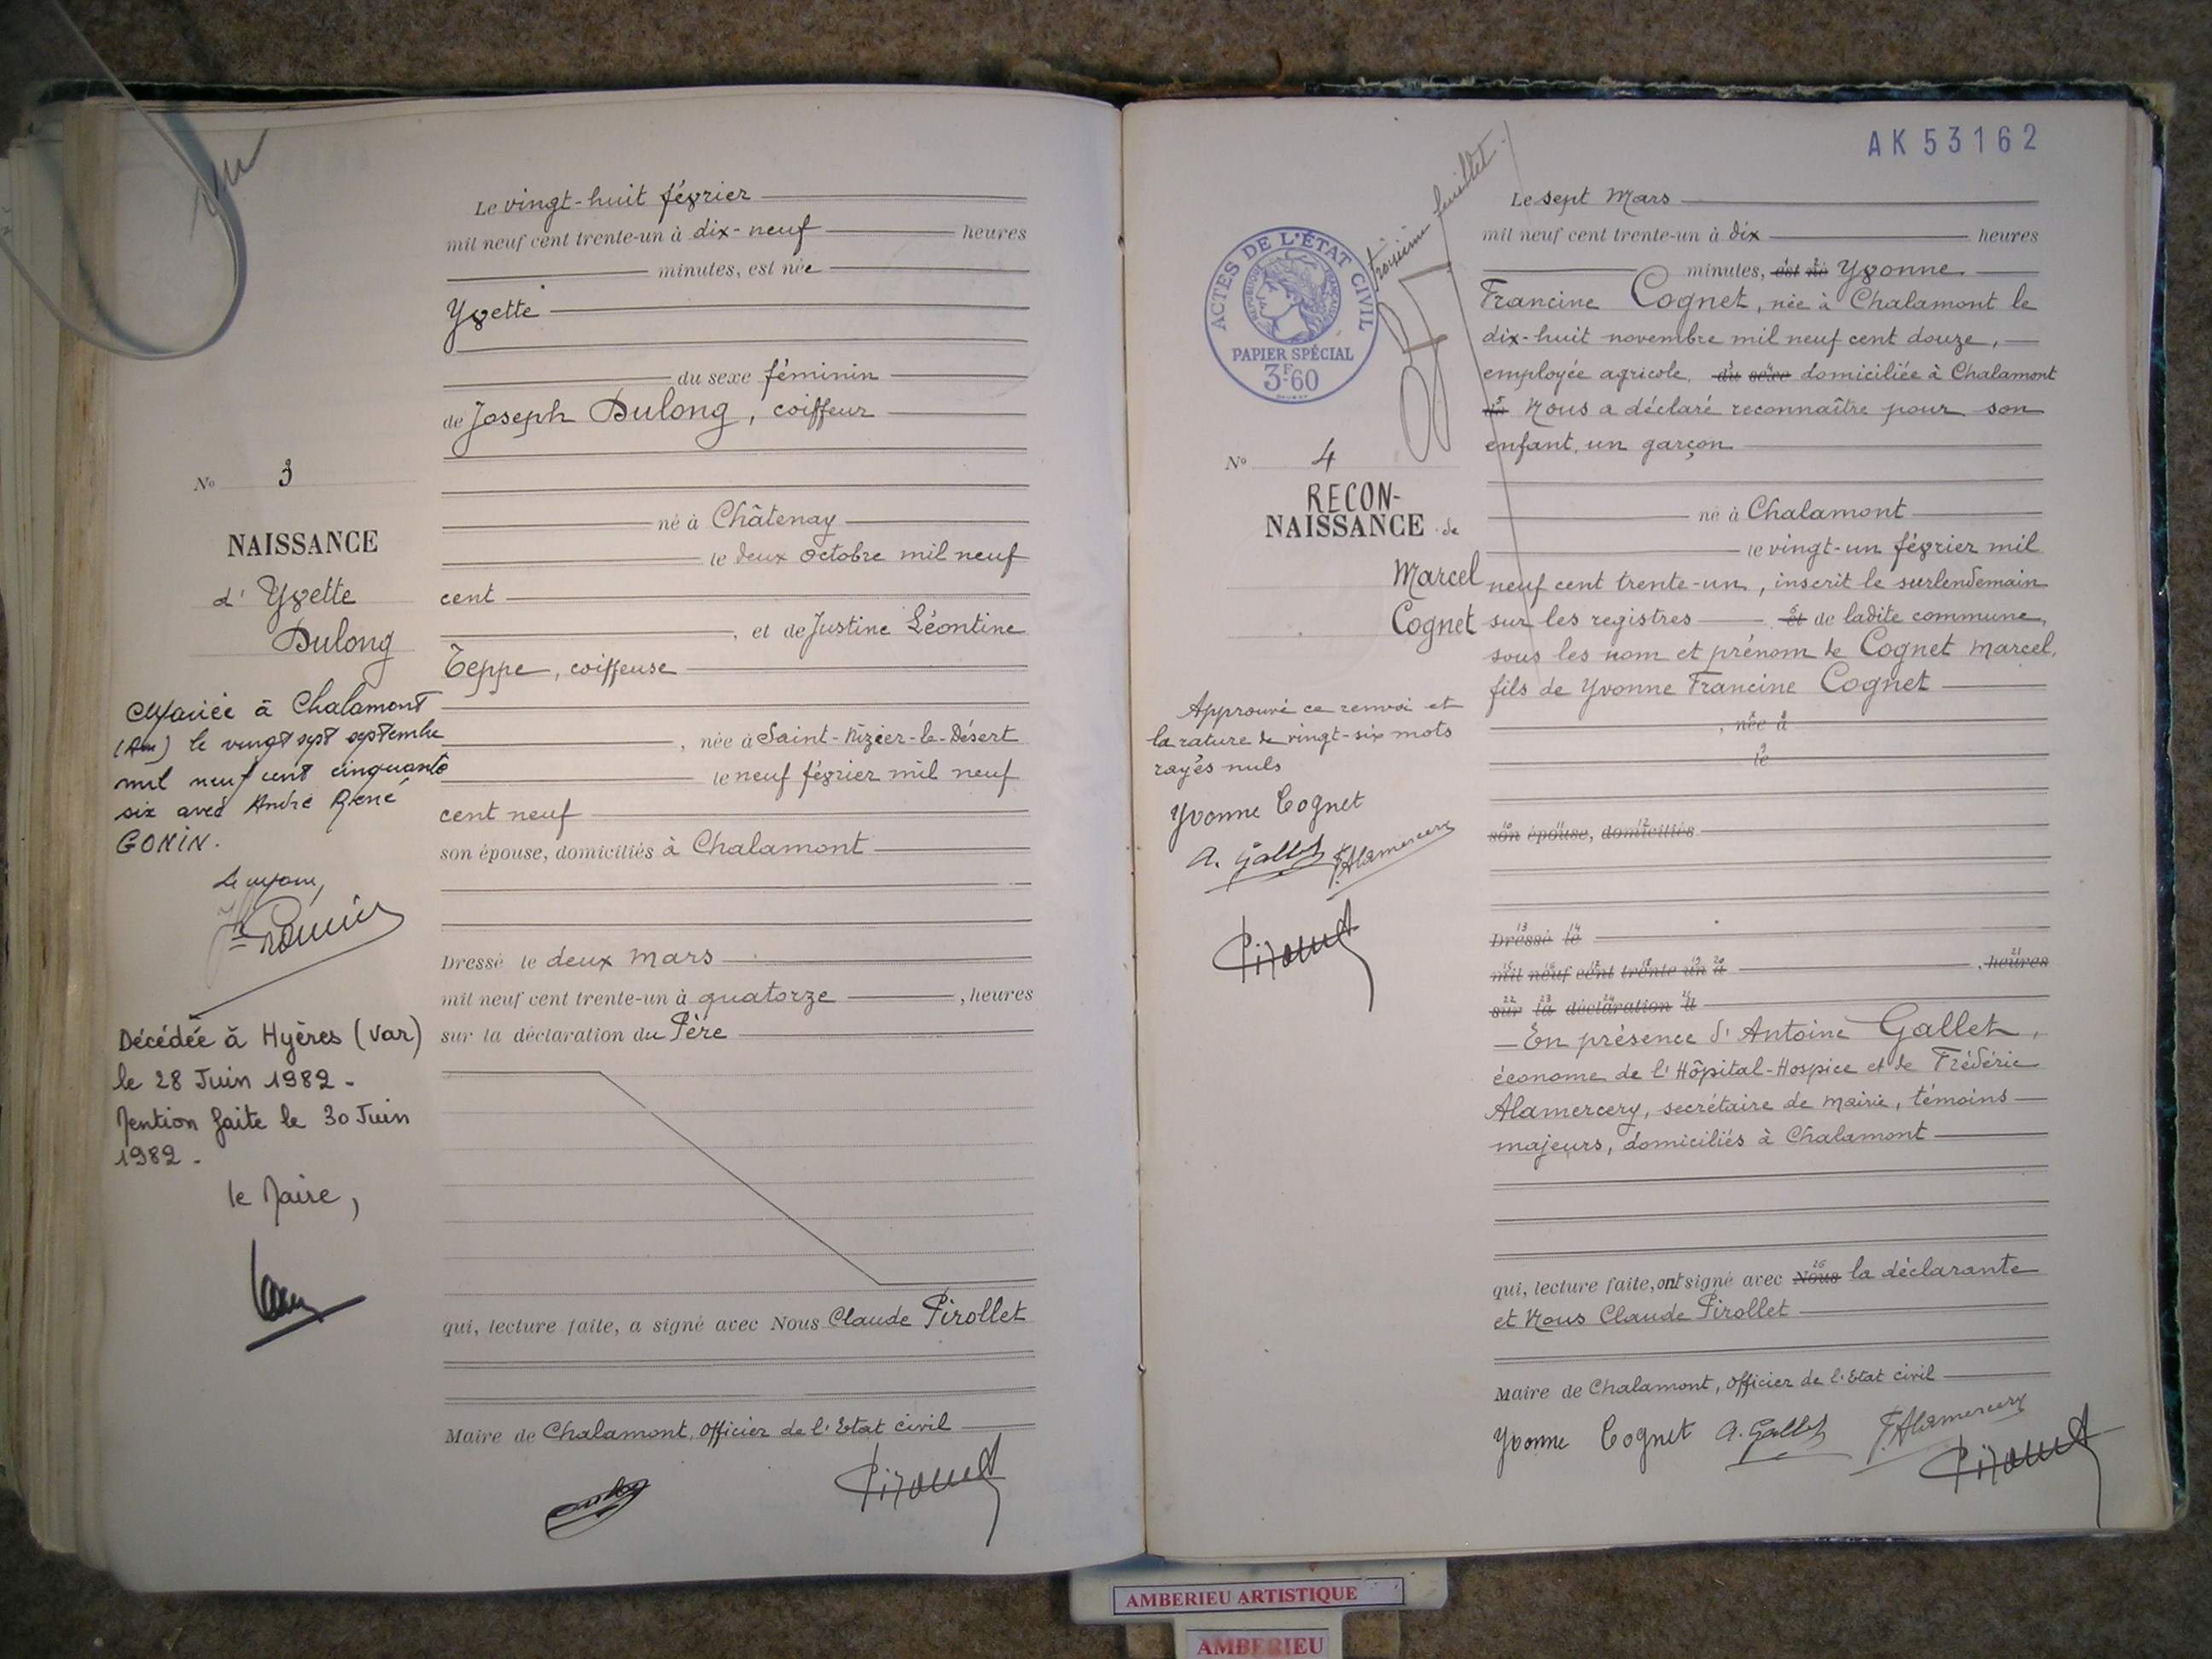 Le vingt-huit février
mil neuf cent trente-un à dix-neuf heures
minutes, est née
Yvette
du sexe féminin
de Joseph Dulong, coiffeur
né à Châtenay
le deux octobre mil neuf
cent
, et de Justine Léontine
Teppe, coiffeuse
, née à Saint-Nizier-le-Désert
le neuf février mil neuf
cent neuf
son épouse, domiciliés à Chalamont
Dressé le deux mars
mil neuf cent trente-un à quatorze , heures
sur la déclaration du Père
qui, lecture faite, a signé avec Nous Claude Pirollet
Maire de Chalamont, Officier de l'Etat civil
No 3
NAISSANCE
d' Yvette
Dulong
Mariée à Chalamont
(Ain) le vingt sept septembre
mil neuf cent cinquante
six avec André René
GONIN.
Le Maire,
Décédée à Hyères (Var)
le 28 Juin 1982 -
Mention faite le 30 Juin
1982 -
le Maire,
AK 53162
troisième feuillet
ACTES DE L'ÉTAT CIVIL
RÉPUBLIQUE FRANÇAISE
PAPIER SPÉCIAL
3F60
No 4
RECON-
NAISSANCE de
Marcel
Cognet
Approuvé ce renvoi et
la rature de vingt-six mots
rayés nuls
Yvonne Cognet
A. Gallet F. Alamercery
Pirollet
Le sept Mars
mil neuf cent trente-un à dix heures
minutes, est né Yvonne
Francine Cognet, née à Chalamont le
dix-huit novembre mil neuf cent douze,
employée agricole, du sexe domiciliée à Chalamont
de Nous a déclaré reconnaître pour son
enfant, un garçon
né à Chalamont
le vingt-un février mil
neuf cent trente-un, inscrit le surlendemain
sur les registres et de ladite commune,
sous les nom et prénom de Cognet Marcel,
fils de Yvonne Francine Cognet
, née à
le
son épouse, domiciliés
Dressé le
mil neuf cent trente un à , heures
sur la déclaration d
En présence d'Antoine Gallet,
économe de l'Hôpital-Hospice et de Frédéric
Alamercery, secrétaire de mairie, témoins
majeurs, domiciliés à Chalamont
qui, lecture faite, ont signé avec Nous la déclarante
et Nous Claude Pirollet
Maire de Chalamont, Officier de l'Etat civil
Yvonne Cognet A. Gallet F. Alamercery
Pirollet
AMBERIEU ARTISTIQUE
AMBERIEU